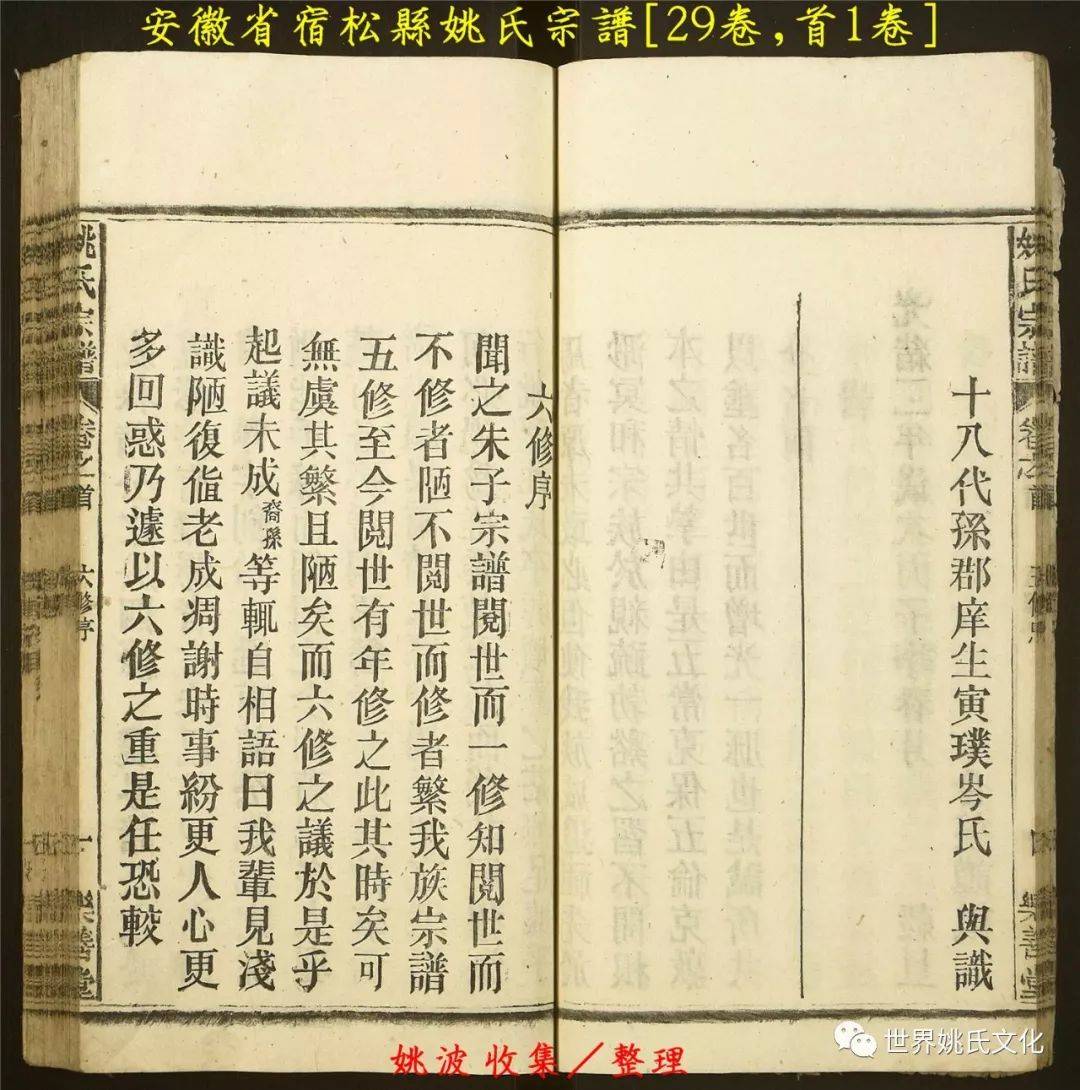 安徽省宿松縣姚氏宗譜[29卷,首1卷]
姚氏宗譜
卷之首
樂善堂
十八代孫郡庠生寅璞岑氏 與識
六修序
聞之朱子宗譜閱世而一修知閱世而
不修者陋不閱世而修者繁我族宗譜
五修至今閱世有年修之此其時矣可
無虞其繁且陋矣而六修之議於是乎
起議未成裔孫等輒自相語曰我輩見淺
識陋復值老成凋謝時事紛更人心更
多回惑乃遽以六修之重是任恐較
姚氏宗譜
卷之首
六修序
一
樂善堂
姚波收集/整理
世界姚氏文化